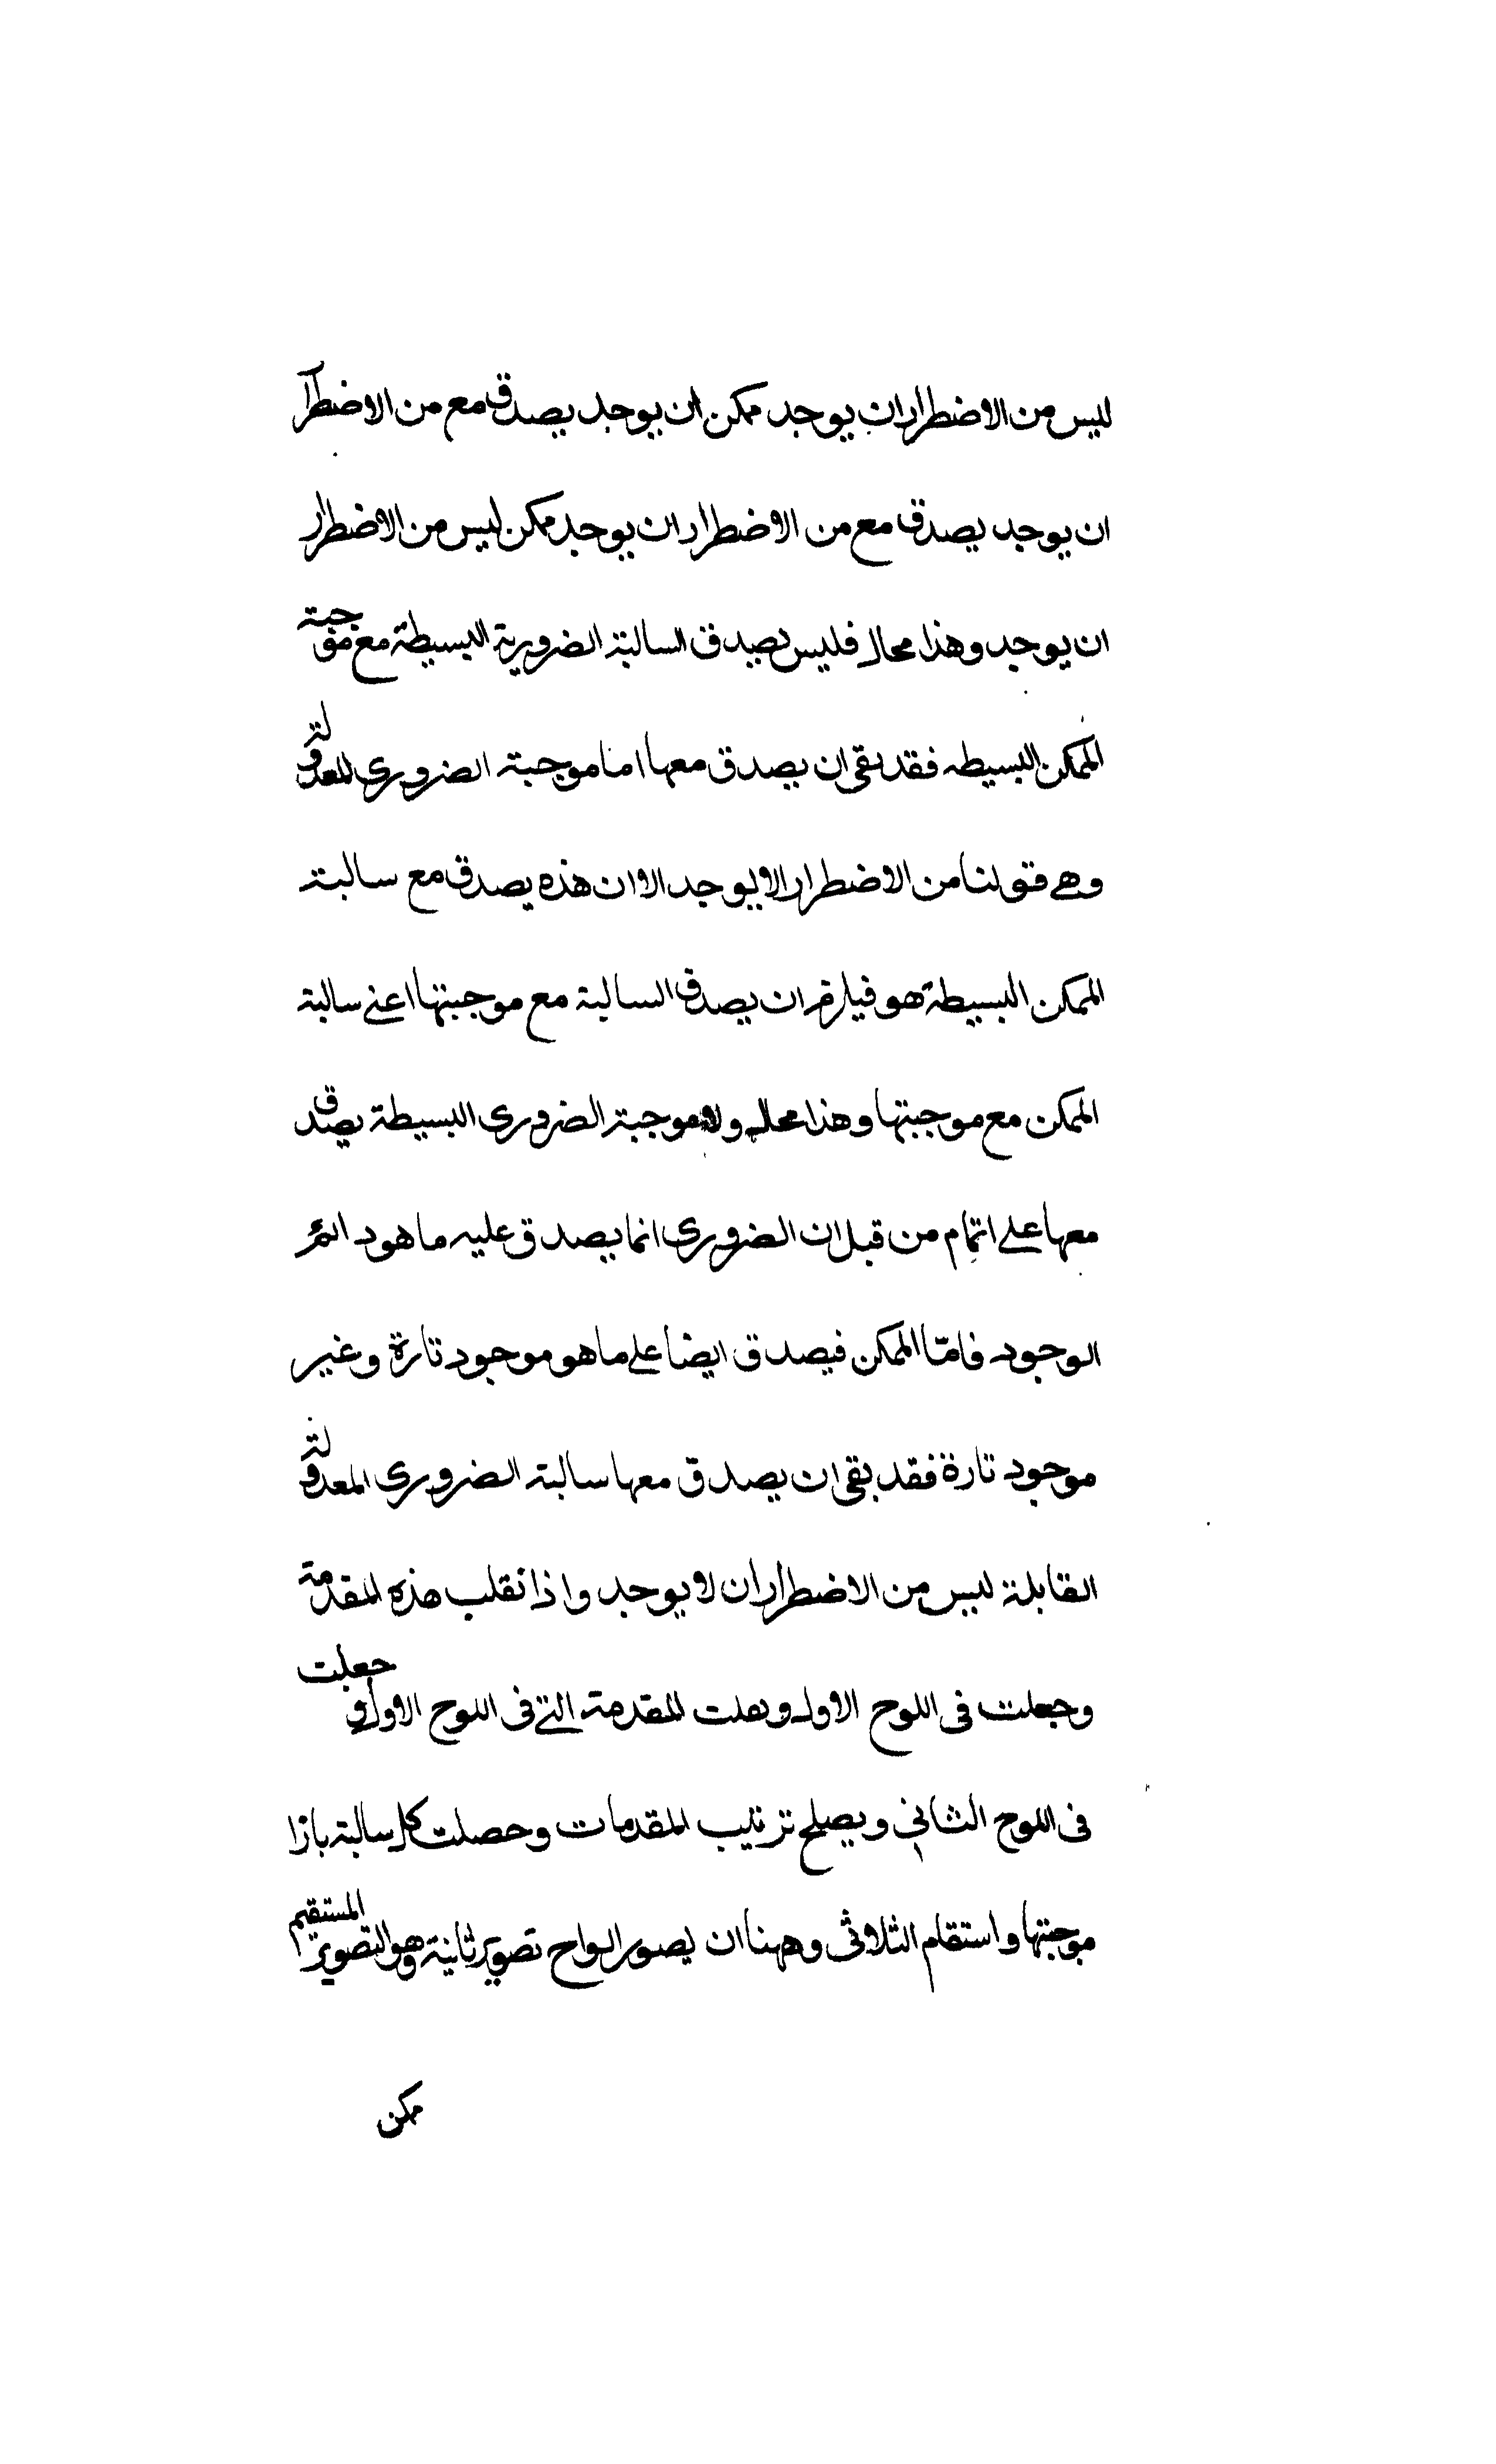 ليس من الاضطرار ان يوجد ممكن ان يوجد يصدق مع من الاضطرار
ان يوجد يصدق مع من الاضطرار ان يوجد ممكن ليس من الاضطرار
ان يوجد وهذا محال فليس يصدق السالبة الضرورية البسيطة مع موجبة
الممكن البسيطه فقد بقى ان يصدق معها اما موجبة الضرورى المعدولة
وهى قولنا من الاضطرار الا يوجد الا ان هذه يصدق مع سالبة
الممكن البسيطة هو فيلزم ان يصدق السالبة مع موجبتها اعنى سالبة
الممكن مع موجبتها وهذا محال ولا موجبة الضرورى البسيطة يصدق
معها على اتمام من قبل ان الضرورى انما يصدق عليه ما هو دائم
الوجود فامّا الممكن فيصدق ايضا على ما هو موجود تارة وغير
موجود تارة فقد بقى ان يصدق معها سالبة الضرورى المعدولة
القابلة ليس من الاضطرار ان لا يوجد واذا نقلب هذه المقدمة
وجعلت فى اللوح الاول ونقلت المقدمة التى فى اللوح الاول وجعلت
فى اللوح الثانى ويصلح ترتيب المقدمات وحصلت كل سالبة بازا
موجبتها واستقام الثلاثى وههنا ان يصور الواح تصوير ثانية وهو التصوير المستقيم
ممكن